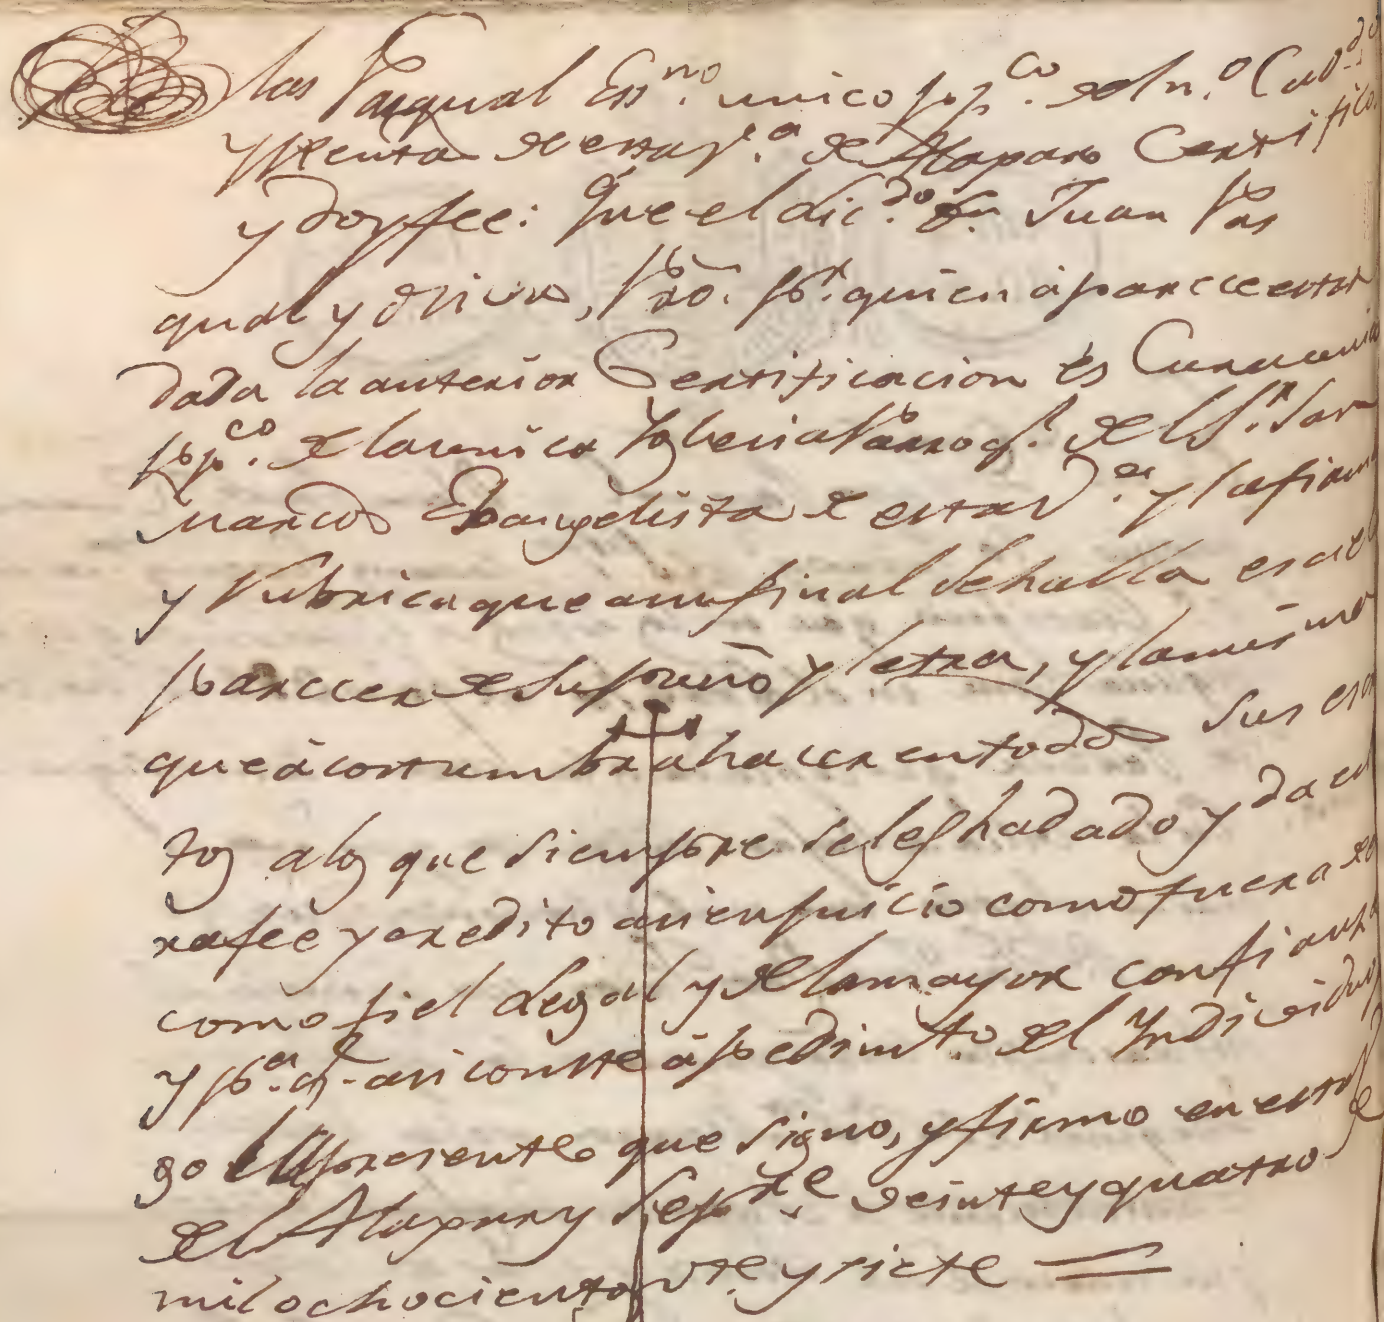 Blas Pasqual Ess.no unico pp.co del n.o Cavd.do
y Renta de esta v.a de Alaparo Certifico
y doy fee: Que el lic.do Dn. Juan Pas
qual y Orivas, Pro. pr. quien aparece estar
dada la anterior Certificacion es Cura
pp.co de la unica Yglecia Parroq.l de el Sr. San
Marcos Ebangelista de esta V.a y la firma
y Rubrica que a su final se halla es al
parecer de su puño y letra, y la mismo
que acostumbra hacer en todos sus escri
tos alos que siempre seles ha dado y da en
rafee y credito asi en juicio como fuera de el
como fiel Legal y de la mayor confianza
y p.a q.e asi conste a pedimto. del Yndividuo
go el presente que signo, y firmo en esta V.
de el Alapar y Sepre. veinte y quatro de
mil ochocientos vte. y siete =